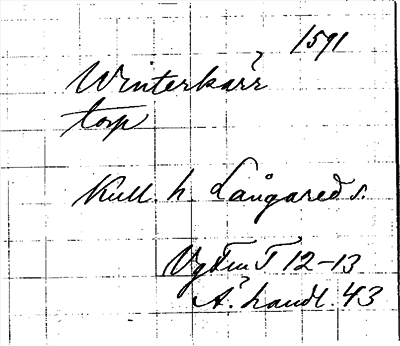 1591
Winterkärr
torp
Kull. h. Långared s.
Vg Fm T 12-13
Ä. handl. 43